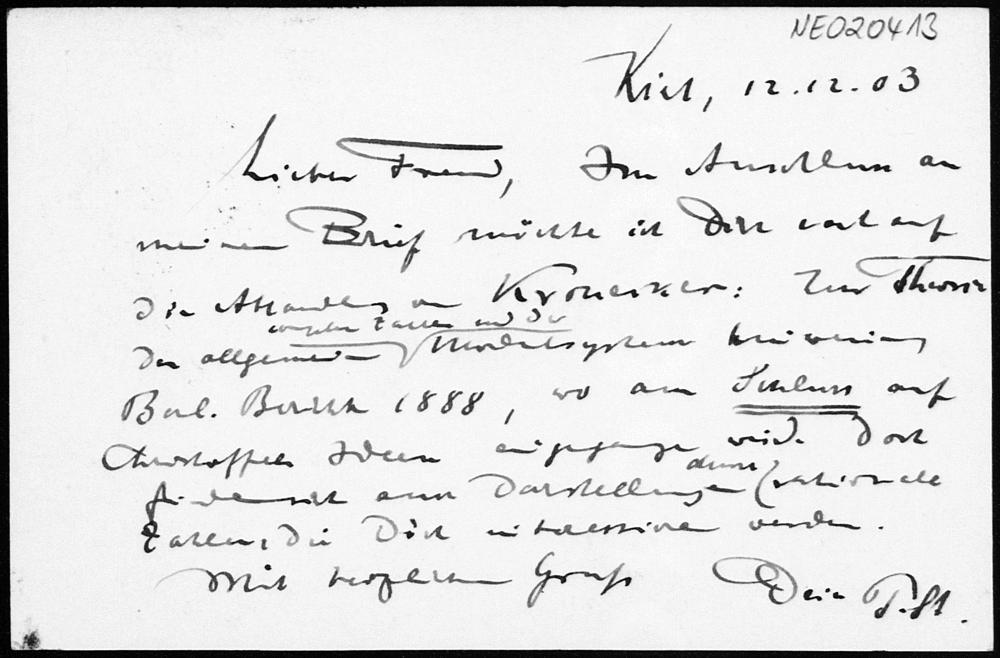 NE020413
Kiel, 12.12.03
Lieber Freund, Im Anschluss an
meinen Brief möchte ich Dich auf
die Abhandlung von Kronecker: Zur Theorie
complexen Zahlen und der
der allgemeinen Modulsysteme hinweisen
Berl. Berichte 1888, wo am Schluss auf
Christoffels Ideen eingegangen wird. Dort
finden sich auch Darstellungen durch rationale
Zahlen, die Dich interessiren werden.
Mit herzlichem Gruß Dein P. St.